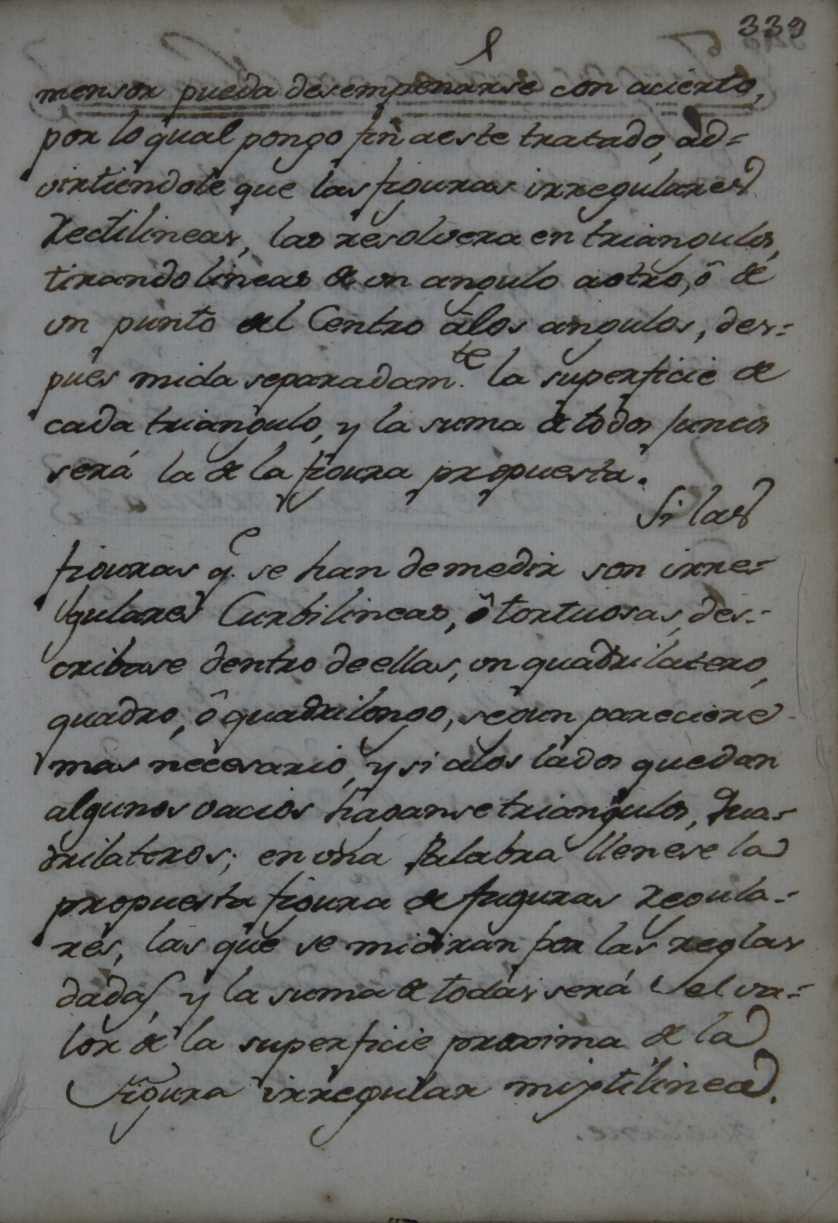 339
mensor pueda desempeñarse con acierto,
por lo qual pongo fin a este tratado, ad-
virtiendole que las figuras irregulares
Rectilineas, las resolvera en triangulos,
tirando lineas de un angulo a otro, ô de
un punto del Centro â los angulos, des-
pues mida separadam.te la superficie de
cada triangulo, y la suma de todos juncos
será la de la figura propuesta.
Si las
figuras q.e se han de medir son irre-
gulares Curbilineas, ô tortuosas, des-
cribase dentro de ellas, un quadrilatero,
quadro, ô quadrilongo, segun pareciere
mas necesario, y si a los lados quedan
algunos vacios haganse triangulos, qua-
drilateros; en una Palabra llenese la
propuesta figura de figuras Regula-
res, las que se mediran por las reglas
dadas, y la suma de todas será el va-
lor de la superficie proxima de la
Figura irregular mixtilinea.